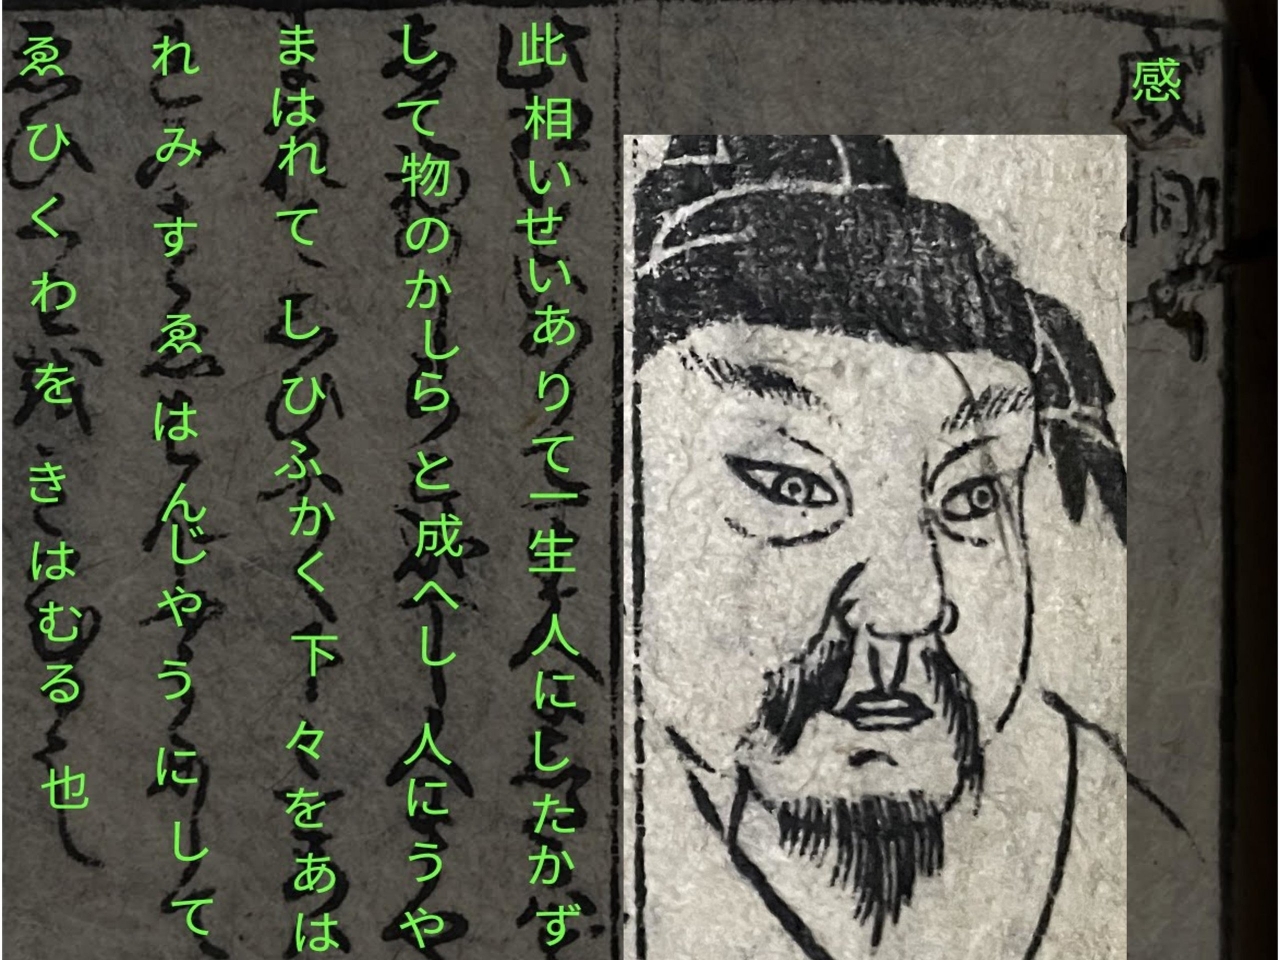 感
此相いせいありて一生人にしたかず
して物のかしらと成へし人にうや
まはれてしひふかく下々をあは
れみすゑはんじやうにして
ゑひくわをきはむる也